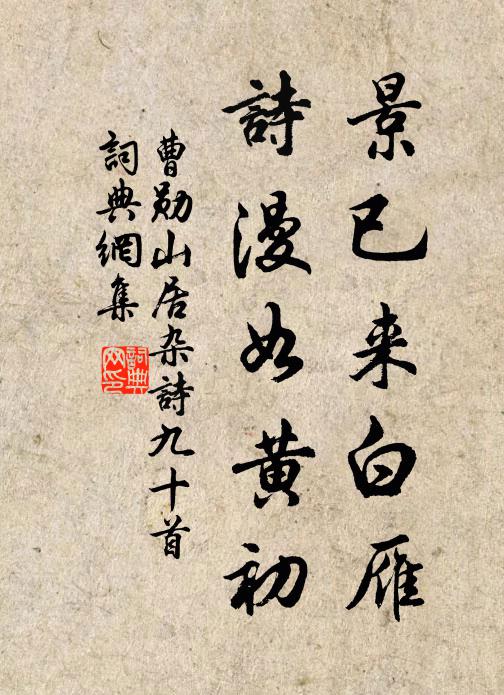 景已来白雁
詩漫如黄初
曹勋山居杂詩九十首
詞典網集
詞典網印